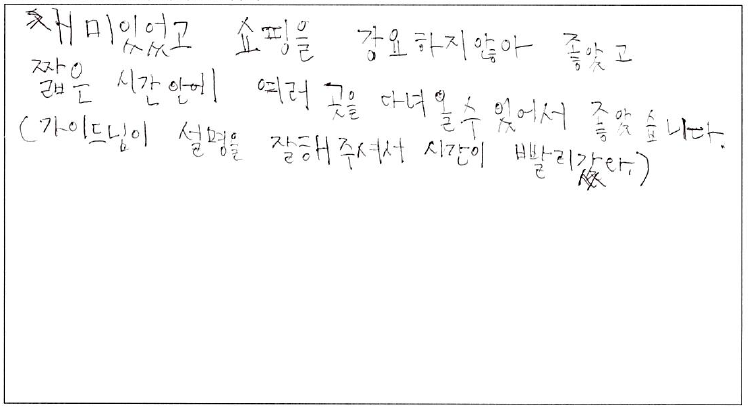 재미있었고 쇼핑을 강요하지않아 좋았고
짧은 시간안에 여러 곳을 다녀올수 있어서 좋았습니다.
(가이드님이 설명을 잘해주셔서 시간이 빨리갔다.)